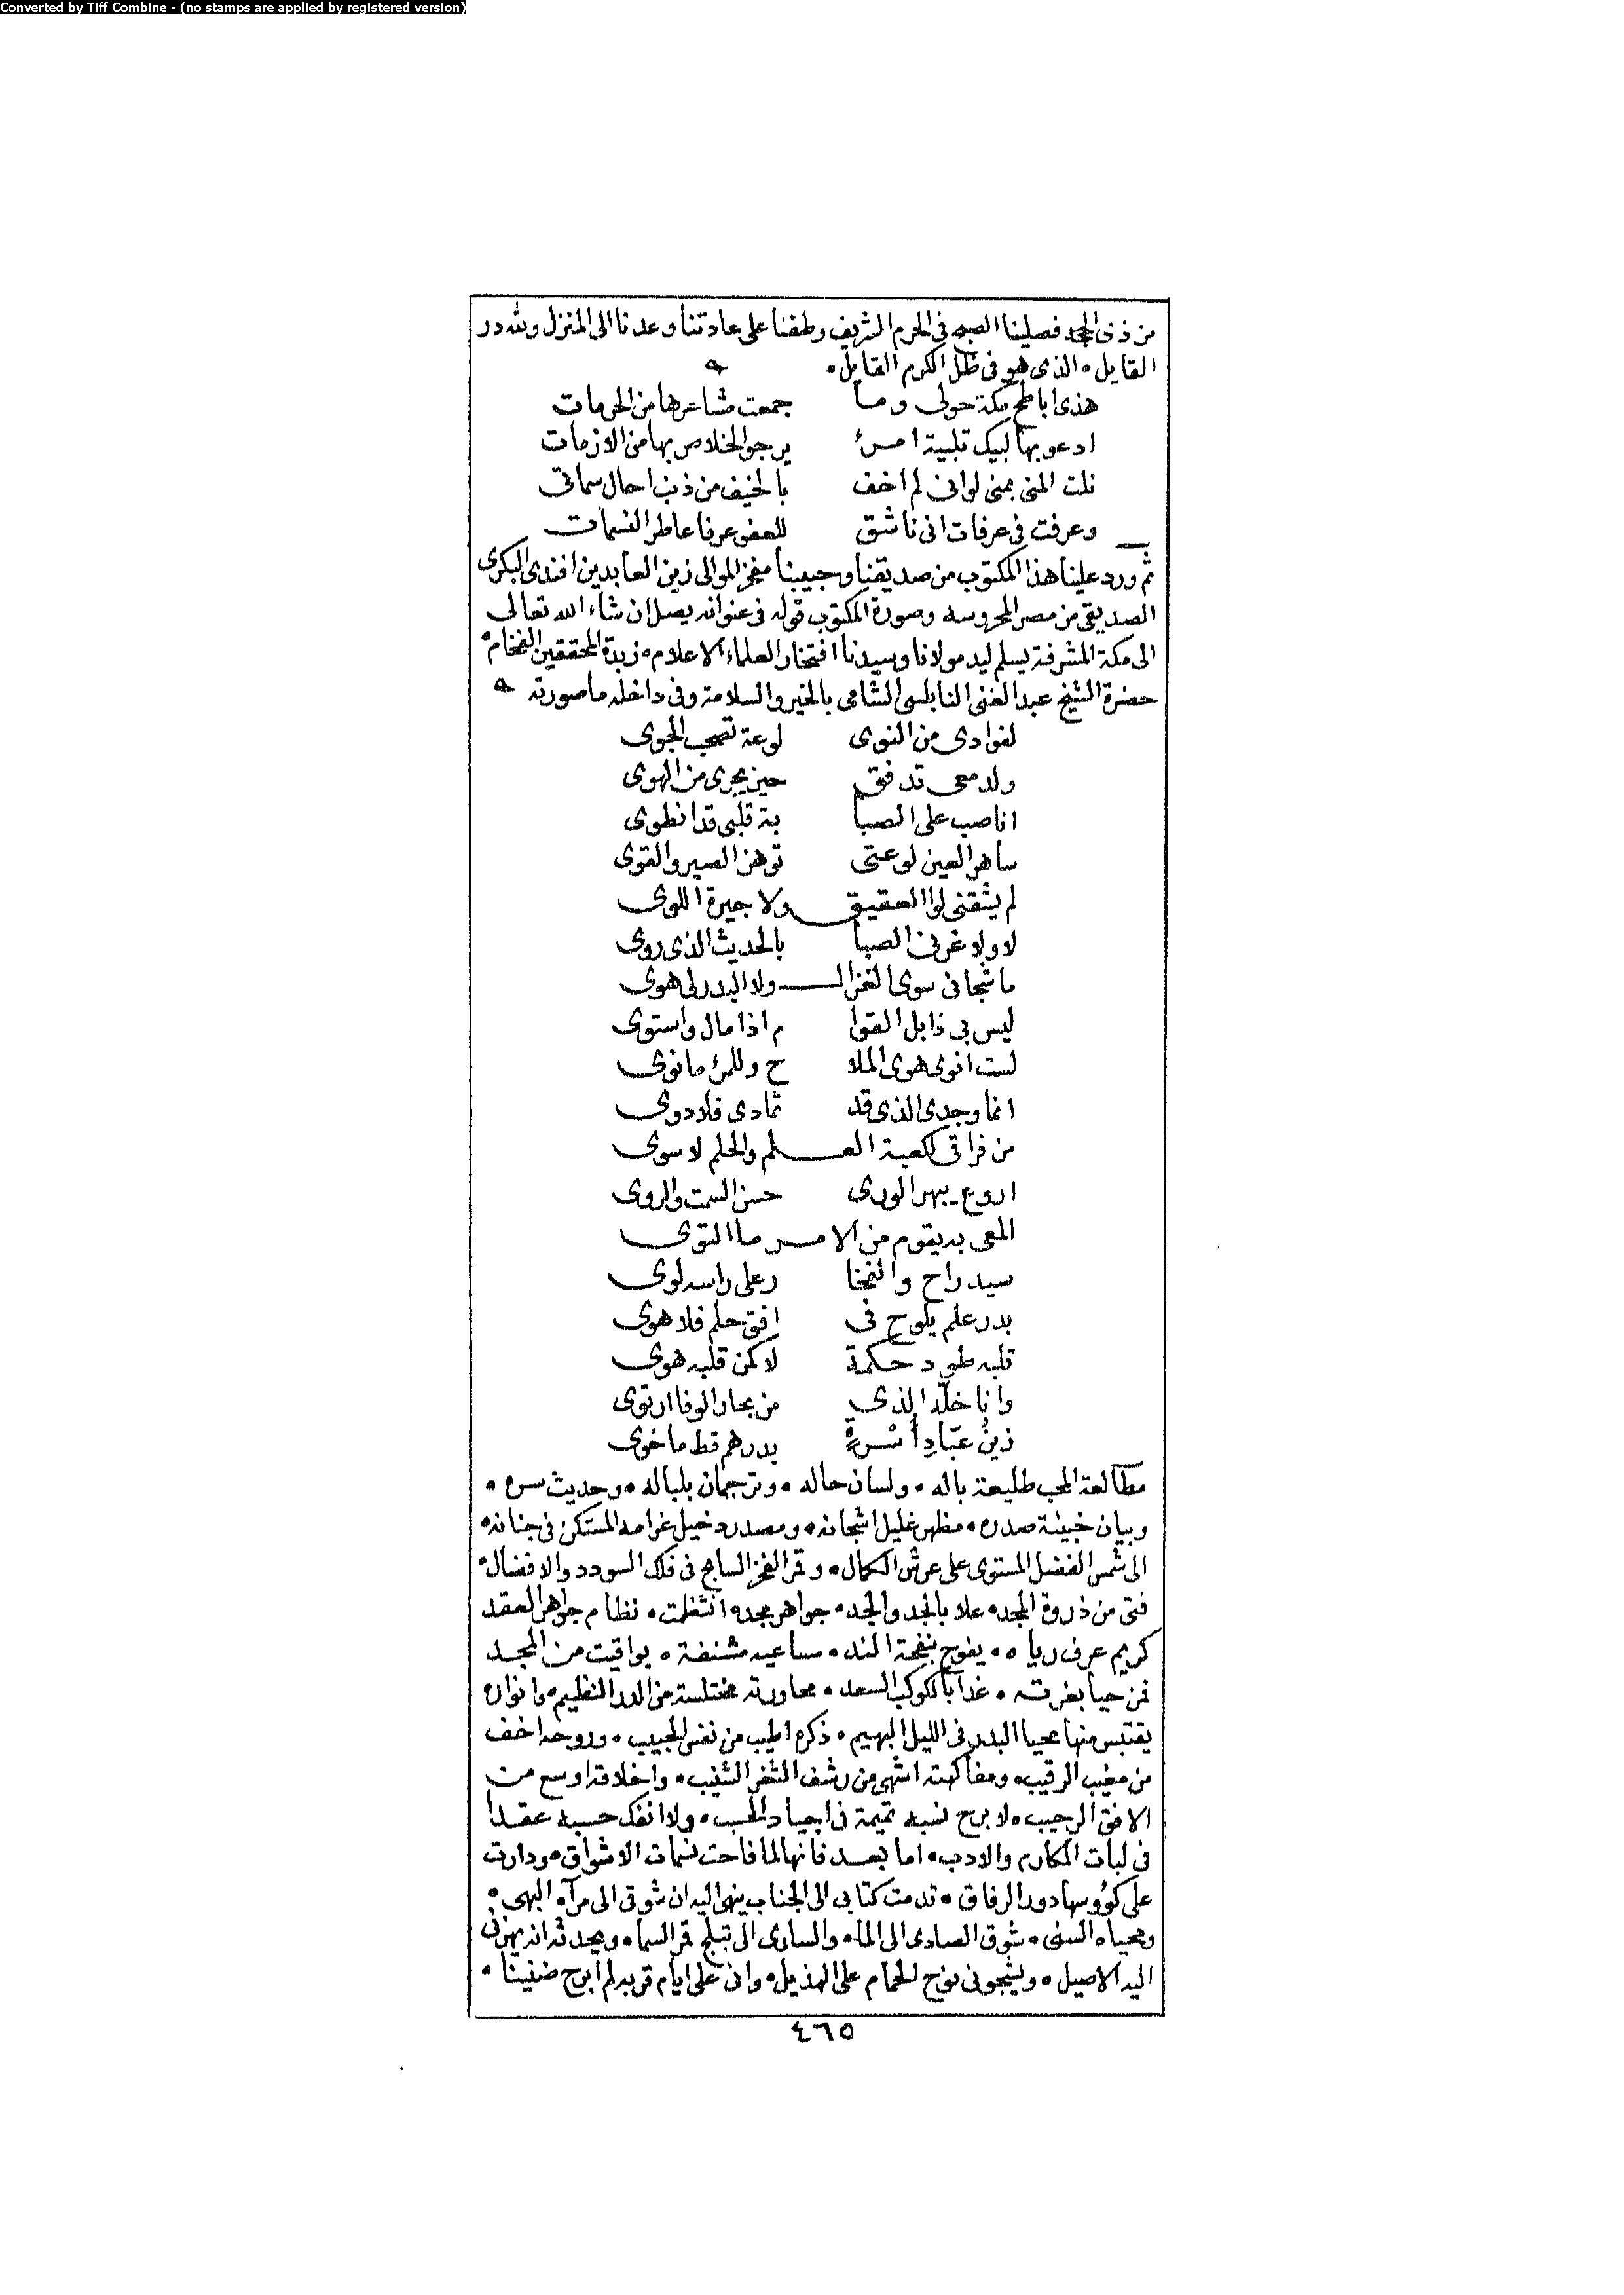 Converted by Tiff Combine - (no stamps are applied by registered version)
من ذى الحجه فصلينا الصبح فى الحرم الشريف وطفنا على عادتنا وعدنا الى المنزل ولله در
القايل • الذى هو فى ظل الكرم القايل •
هذى اباطح مكة حولى وما جمعت مشاعرها من الحرمات
ادعو بها لبيك تلبية امرئ يرجو الخلاص بها من الازمات
نلت المنى بمنى لوانى لم اخف بالخيف من ذنب احال سماتى
وعرفت فى عرفات انى ناشق للعفو عرفا عاطر النسمات
ثم ورد علينا هذا المكتوب من صديقنا وحبيبنا مفخر الموالى زين العابدين افندى البكرى
الصديقى من مصر المحروسه وصورة المكتوب قوله فى عنوانه يصل ان شاء الله تعالى
الى مكة المشرفة يسلم ليد مولانا وسيدنا افتخار العلماء الاعلام • زبدة المحققين الفخام •
حضرة الشيخ عبد الغنى النابلسى الشامى بالخير والسلامة وفى داخله ما صورته
لفوادى من النوى لوعة تصحب الجوى
ولدمعى تدفق حين يجرى من الهوى
انا صب على الصبا بة قلبى قد انطوى
ساهر العين لوعتى توهن الصبر والقوى
لم يشقنى لوا العقيق ولا جيرة اللوى
لا ولا غرنى الصبا بالحديث الذى روى
ما شجانى سوى الغزال ولا البدر لى هوى
ليس بى ذابل القوا م اذا مال واستوى
لست انوى هوى الملا ح وللمرئ ما نوى
انما وجدى الذى قد تمادى فلا دوى
من فراقى لكعبة العلم والحلم لا سوى
اروع يبهر الورى حسن السمت والروى
المعى به يقوم من الامر ما التوى
سيد راح والفخا ر على راسه لوى
بدر علم يلوح فى افق حلم فلا هوى
قلبه طود حكمة لاكمن قلبه هوى
وانا خله الذى من بحار الوفا ارتوى
زينُ عبّادِ أسرةٍ بدرهم قط ما خوى
مطالعة المحب طليعة باله • ولسان حاله • وترجمان بلباله • وحديث سره •
وبيان خبيئة صدره • مظهر غليل اشجانه • ومصدر دخيل غرامه المستكن فى جنانه •
الى شمس الفضل المستوى على عرش الكمال • وقمر الفخر السابح فى فلك السودد والافضال •
فتى من ذروة المجد • علا بالجد والجد • جواهر مجده انتظمت • نظام جواهر العقد
كريم عرف رياه • يفوح بنفحة الند • مساعيه مشنفة • يواقيت من المجد
فمن حيا بغرته • غدا بالكوكب السعد • محاورته مختلسة من الدر النظيم • وانواره
يقتبس منها محيا البدر فى الليل البهيم • ذكره اطيب من نفس الحبيب • وروحه اخف
من مغيب الرقيب • ومفاكهته اشهى من رشف الثغر الشنيب • واخلاقه اوسع من
الافق الرحيب • لا برح نسبه تميمة فى اجياد الحسب • ولا انفك حسبه عقدا
فى لبات المكارم والادب • اما بعد فانها لما فاحت نسمات الاشواق • ودارت
على كؤوسها دور الرفاق • قدمت كتابى الى الجناب ينهى اليه ان شوقى الى مرآه البهى •
ومحياه السنى • شوق الصادى الى الماء • والسارى الى تبلج قمر السما • ويحدثه انه يهزنى
اليه الاصيل • ويشجونى نوح الحمام على الهذيل • وانى على ايام قربه لم ابرح ضنينا •
٤٦٥